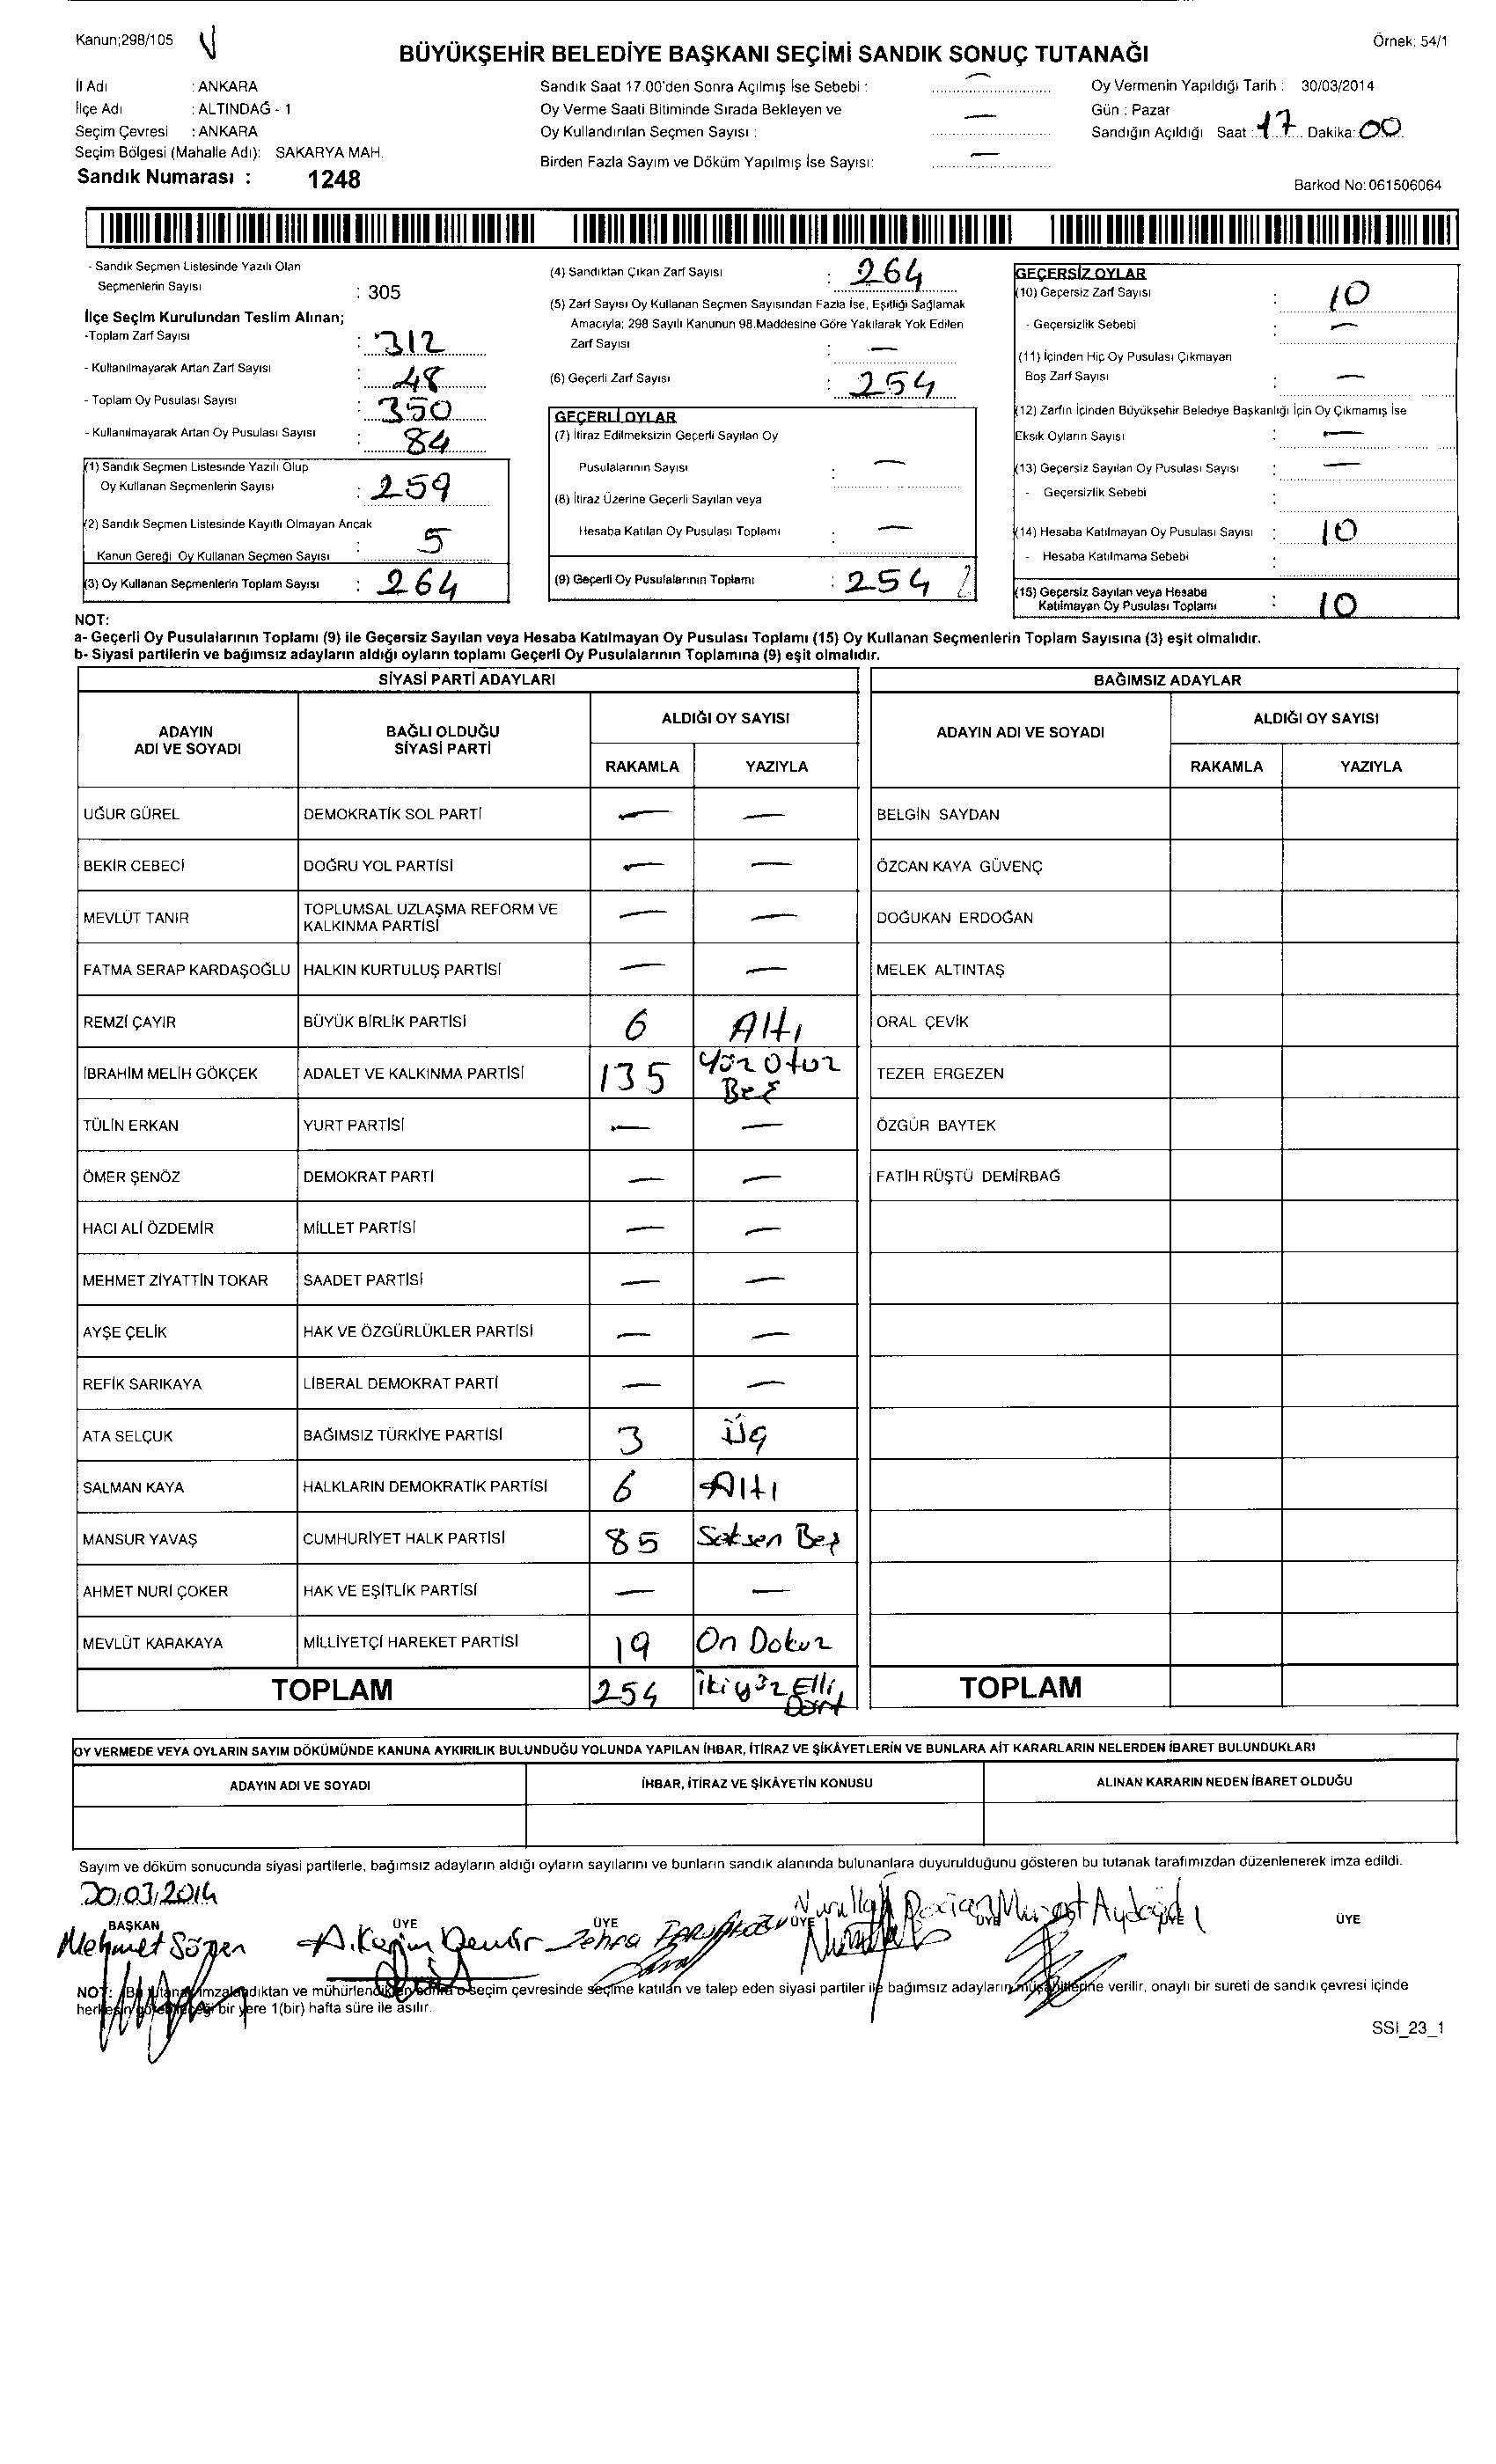 Kanun;298/105
Örnek: 54/1
BÜYÜKŞEHİR BELEDİYE BAŞKANI SEÇİMİ SANDIK SONUÇ TUTANAĞI
İl Adı : ANKARA
İlçe Adı : ALTINDAĞ - 1
Seçim Çevresi : ANKARA
Seçim Bölgesi (Mahalle Adı): SAKARYA MAH.
Sandık Numarası : 1248
Sandık Saat 17.00'den Sonra Açılmış İse Sebebi : —
Oy Verme Saati Bitiminde Sırada Bekleyen ve
Oy Kullandırılan Seçmen Sayısı : —
Birden Fazla Sayım ve Döküm Yapılmış İse Sayısı: —
Oy Vermenin Yapıldığı Tarih : 30/03/2014
Gün : Pazar
Sandığın Açıldığı Saat : 17 Dakika: 00
Barkod No: 061506064
- Sandık Seçmen Listesinde Yazılı Olan
Seçmenlerin Sayısı : 305
İlçe Seçim Kurulundan Teslim Alınan;
-Toplam Zarf Sayısı : 312
- Kullanılmayarak Artan Zarf Sayısı : 48
- Toplam Oy Pusulası Sayısı : 350
- Kullanılmayarak Artan Oy Pusulası Sayısı : 84
(1) Sandık Seçmen Listesinde Yazılı Olup
Oy Kullanan Seçmenlerin Sayısı : 259
(2) Sandık Seçmen Listesinde Kayıtlı Olmayan Ancak
Kanun Gereği Oy Kullanan Seçmen Sayısı : 5
(3) Oy Kullanan Seçmenlerin Toplam Sayısı : 264
(4) Sandıktan Çıkan Zarf Sayısı : 264
(5) Zarf Sayısı Oy Kullanan Seçmen Sayısından Fazla İse, Eşitliği Sağlamak
Amacıyla; 298 Sayılı Kanunun 98.Maddesine Göre Yakılarak Yok Edilen
Zarf Sayısı : —
(6) Geçerli Zarf Sayısı : 254
GEÇERLİ OYLAR
(7) İtiraz Edilmeksizin Geçerli Sayılan Oy
Pusulalarının Sayısı : —
(8) İtiraz Üzerine Geçerli Sayılan veya
Hesaba Katılan Oy Pusulası Toplamı : —
(9) Geçerli Oy Pusulalarının Toplamı : 254
GEÇERSİZ OYLAR
(10) Geçersiz Zarf Sayısı : 10
- Geçersizlik Sebebi : —
(11) İçinden Hiç Oy Pusulası Çıkmayan
Boş Zarf Sayısı : —
(12) Zarfın İçinden Büyükşehir Belediye Başkanlığı İçin Oy Çıkmamış İse
Eksik Oyların Sayısı : —
(13) Geçersiz Sayılan Oy Pusulası Sayısı : —
- Geçersizlik Sebebi :
(14) Hesaba Katılmayan Oy Pusulası Sayısı : 10
- Hesaba Katılmama Sebebi :
(15) Geçersiz Sayılan veya Hesaba
Katılmayan Oy Pusulası Toplamı : 10
NOT:
a- Geçerli Oy Pusulalarının Toplamı (9) ile Geçersiz Sayılan veya Hesaba Katılmayan Oy Pusulası Toplamı (15) Oy Kullanan Seçmenlerin Toplam Sayısına (3) eşit olmalıdır.
b- Siyasi partilerin ve bağımsız adayların aldığı oyların toplamı Geçerli Oy Pusulalarının Toplamına (9) eşit olmalıdır.
SİYASİ PARTİ ADAYLARI
ADAYIN ADI VE SOYADI BAĞLI OLDUĞU SİYASİ PARTİ ALDIĞI OY SAYISI
RAKAMLA YAZIYLA
UĞUR GÜREL DEMOKRATİK SOL PARTİ — —
BEKİR CEBECİ DOĞRU YOL PARTİSİ — —
MEVLÜT TANIR TOPLUMSAL UZLAŞMA REFORM VE KALKINMA PARTİSİ — —
FATMA SERAP KARDAŞOĞLU HALKIN KURTULUŞ PARTİSİ — —
REMZİ ÇAYIR BÜYÜK BİRLİK PARTİSİ 6 Altı
İBRAHİM MELİH GÖKÇEK ADALET VE KALKINMA PARTİSİ 135 Yüz Otuz Beş
TÜLİN ERKAN YURT PARTİSİ — —
ÖMER ŞENÖZ DEMOKRAT PARTİ — —
HACI ALİ ÖZDEMİR MİLLET PARTİSİ — —
MEHMET ZİYATTİN TOKAR SAADET PARTİSİ — —
AYŞE ÇELİK HAK VE ÖZGÜRLÜKLER PARTİSİ — —
REFİK SARIKAYA LİBERAL DEMOKRAT PARTİ — —
ATA SELÇUK BAĞIMSIZ TÜRKİYE PARTİSİ 3 Üç
SALMAN KAYA HALKLARIN DEMOKRATİK PARTİSİ 6 Altı
MANSUR YAVAŞ CUMHURİYET HALK PARTİSİ 85 Seksen Beş
AHMET NURİ ÇOKER HAK VE EŞİTLİK PARTİSİ — —
MEVLÜT KARAKAYA MİLLİYETÇİ HAREKET PARTİSİ 19 On Dokuz
TOPLAM 254 İkiyüz Elli Dört
BAĞIMSIZ ADAYLAR
ADAYIN ADI VE SOYADI ALDIĞI OY SAYISI
RAKAMLA YAZIYLA
BELGİN SAYDAN
ÖZCAN KAYA GÜVENÇ
DOĞUKAN ERDOĞAN
MELEK ALTINTAŞ
ORAL ÇEVİK
TEZER ERGEZEN
ÖZGÜR BAYTEK
FATİH RÜŞTÜ DEMİRBAĞ
TOPLAM
OY VERMEDE VEYA OYLARIN SAYIM DÖKÜMÜNDE KANUNA AYKIRILIK BULUNDUĞU YOLUNDA YAPILAN İHBAR, İTİRAZ VE ŞİKÂYETLERİN VE BUNLARA AİT KARARLARIN NELERDEN İBARET BULUNDUKLARI
ADAYIN ADI VE SOYADI İHBAR, İTİRAZ VE ŞİKÂYETİN KONUSU ALINAN KARARIN NEDEN İBARET OLDUĞU
Sayım ve döküm sonucunda siyasi partilerle, bağımsız adayların aldığı oyların sayılarını ve bunların sandık alanında bulunanlara duyurulduğunu gösteren bu tutanak tarafımızdan düzenlenerek imza edildi.
30/03/2014
BAŞKAN ÜYE ÜYE ÜYE ÜYE ÜYE ÜYE
Mehmet Sözen A.Kerim Demir Zehra Murat Aydoğdu
NOT: Bu tutanak imzalandıktan ve mühürlendikten sonra o seçim çevresinde seçime katılan ve talep eden siyasi partiler ile bağımsız adayların müşahitlerine verilir, onaylı bir sureti de sandık çevresi içinde
herkesin görebileceği bir yere 1(bir) hafta süre ile asılır.
SSI_23_1